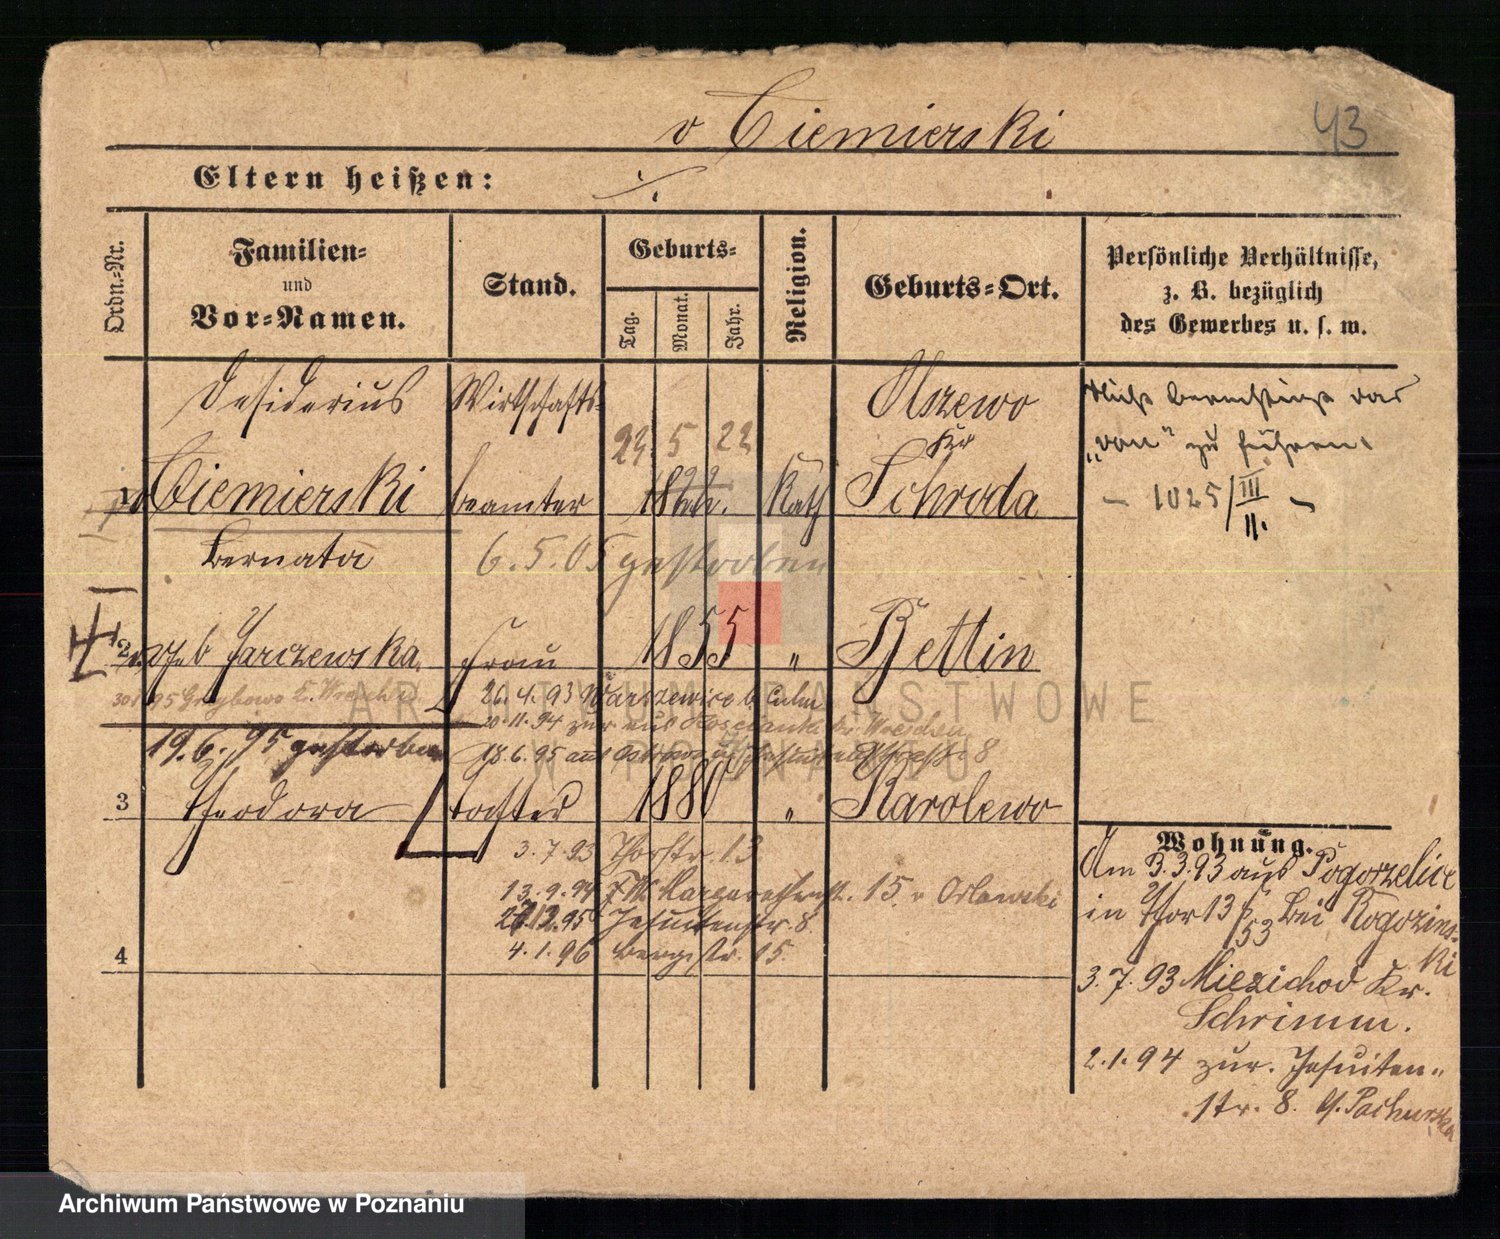 v Ciemierski
43
Eltern heißen: ./.
Ordn.-Nr.
Familien-
und
Vor-Namen.
Stand.
Geburts-
Tag.
Monat.
Jahr.
Religion.
Geburts-Ort.
Persönliche Verhältnisse,
z. B. bezüglich
des Gewerbes u. s. w.
Desiderius
Wirthschafts-
Olszewo
Kr
23. 5 22
1 v Ciemierski
beamter
1822.
Kath
Schroda
Nicht berechtigt das
"von" zu führen.
- 1025/III
II.
Bernata
6. 5. 05 gestorben
2. geb Jarczewska
Frau
1855
"
Bettin
Grzybowo Kr. Wreschen
26. 4. 93 Warszewice b. Culm
20. 11. 94 zur aus Kr. Wreschen
19. 6. 95 gestorben
18. 6. 95 aus
8
3
Theodora
Tochter
1880
"
Karolewo
3. 7. 93 Thorstr. 13
13. 9. 94 15. v Orlowski
95 Jesuitenstr. 8.
4. 1. 96 Bergstr. 15.
4
Wohnung.
Am 3. 3. 93 aus Pogorzelice
in Thor 13 bei Rogozins-
ki
3. 7. 93 Miezichod Kr.
Schrimm.
2. 1. 94 zur. Jesuiten-
str. 8. Pachurska
ARCHIWUM PAŃSTWOWE
W POZNANIU
Archiwum Państwowe w Poznaniu